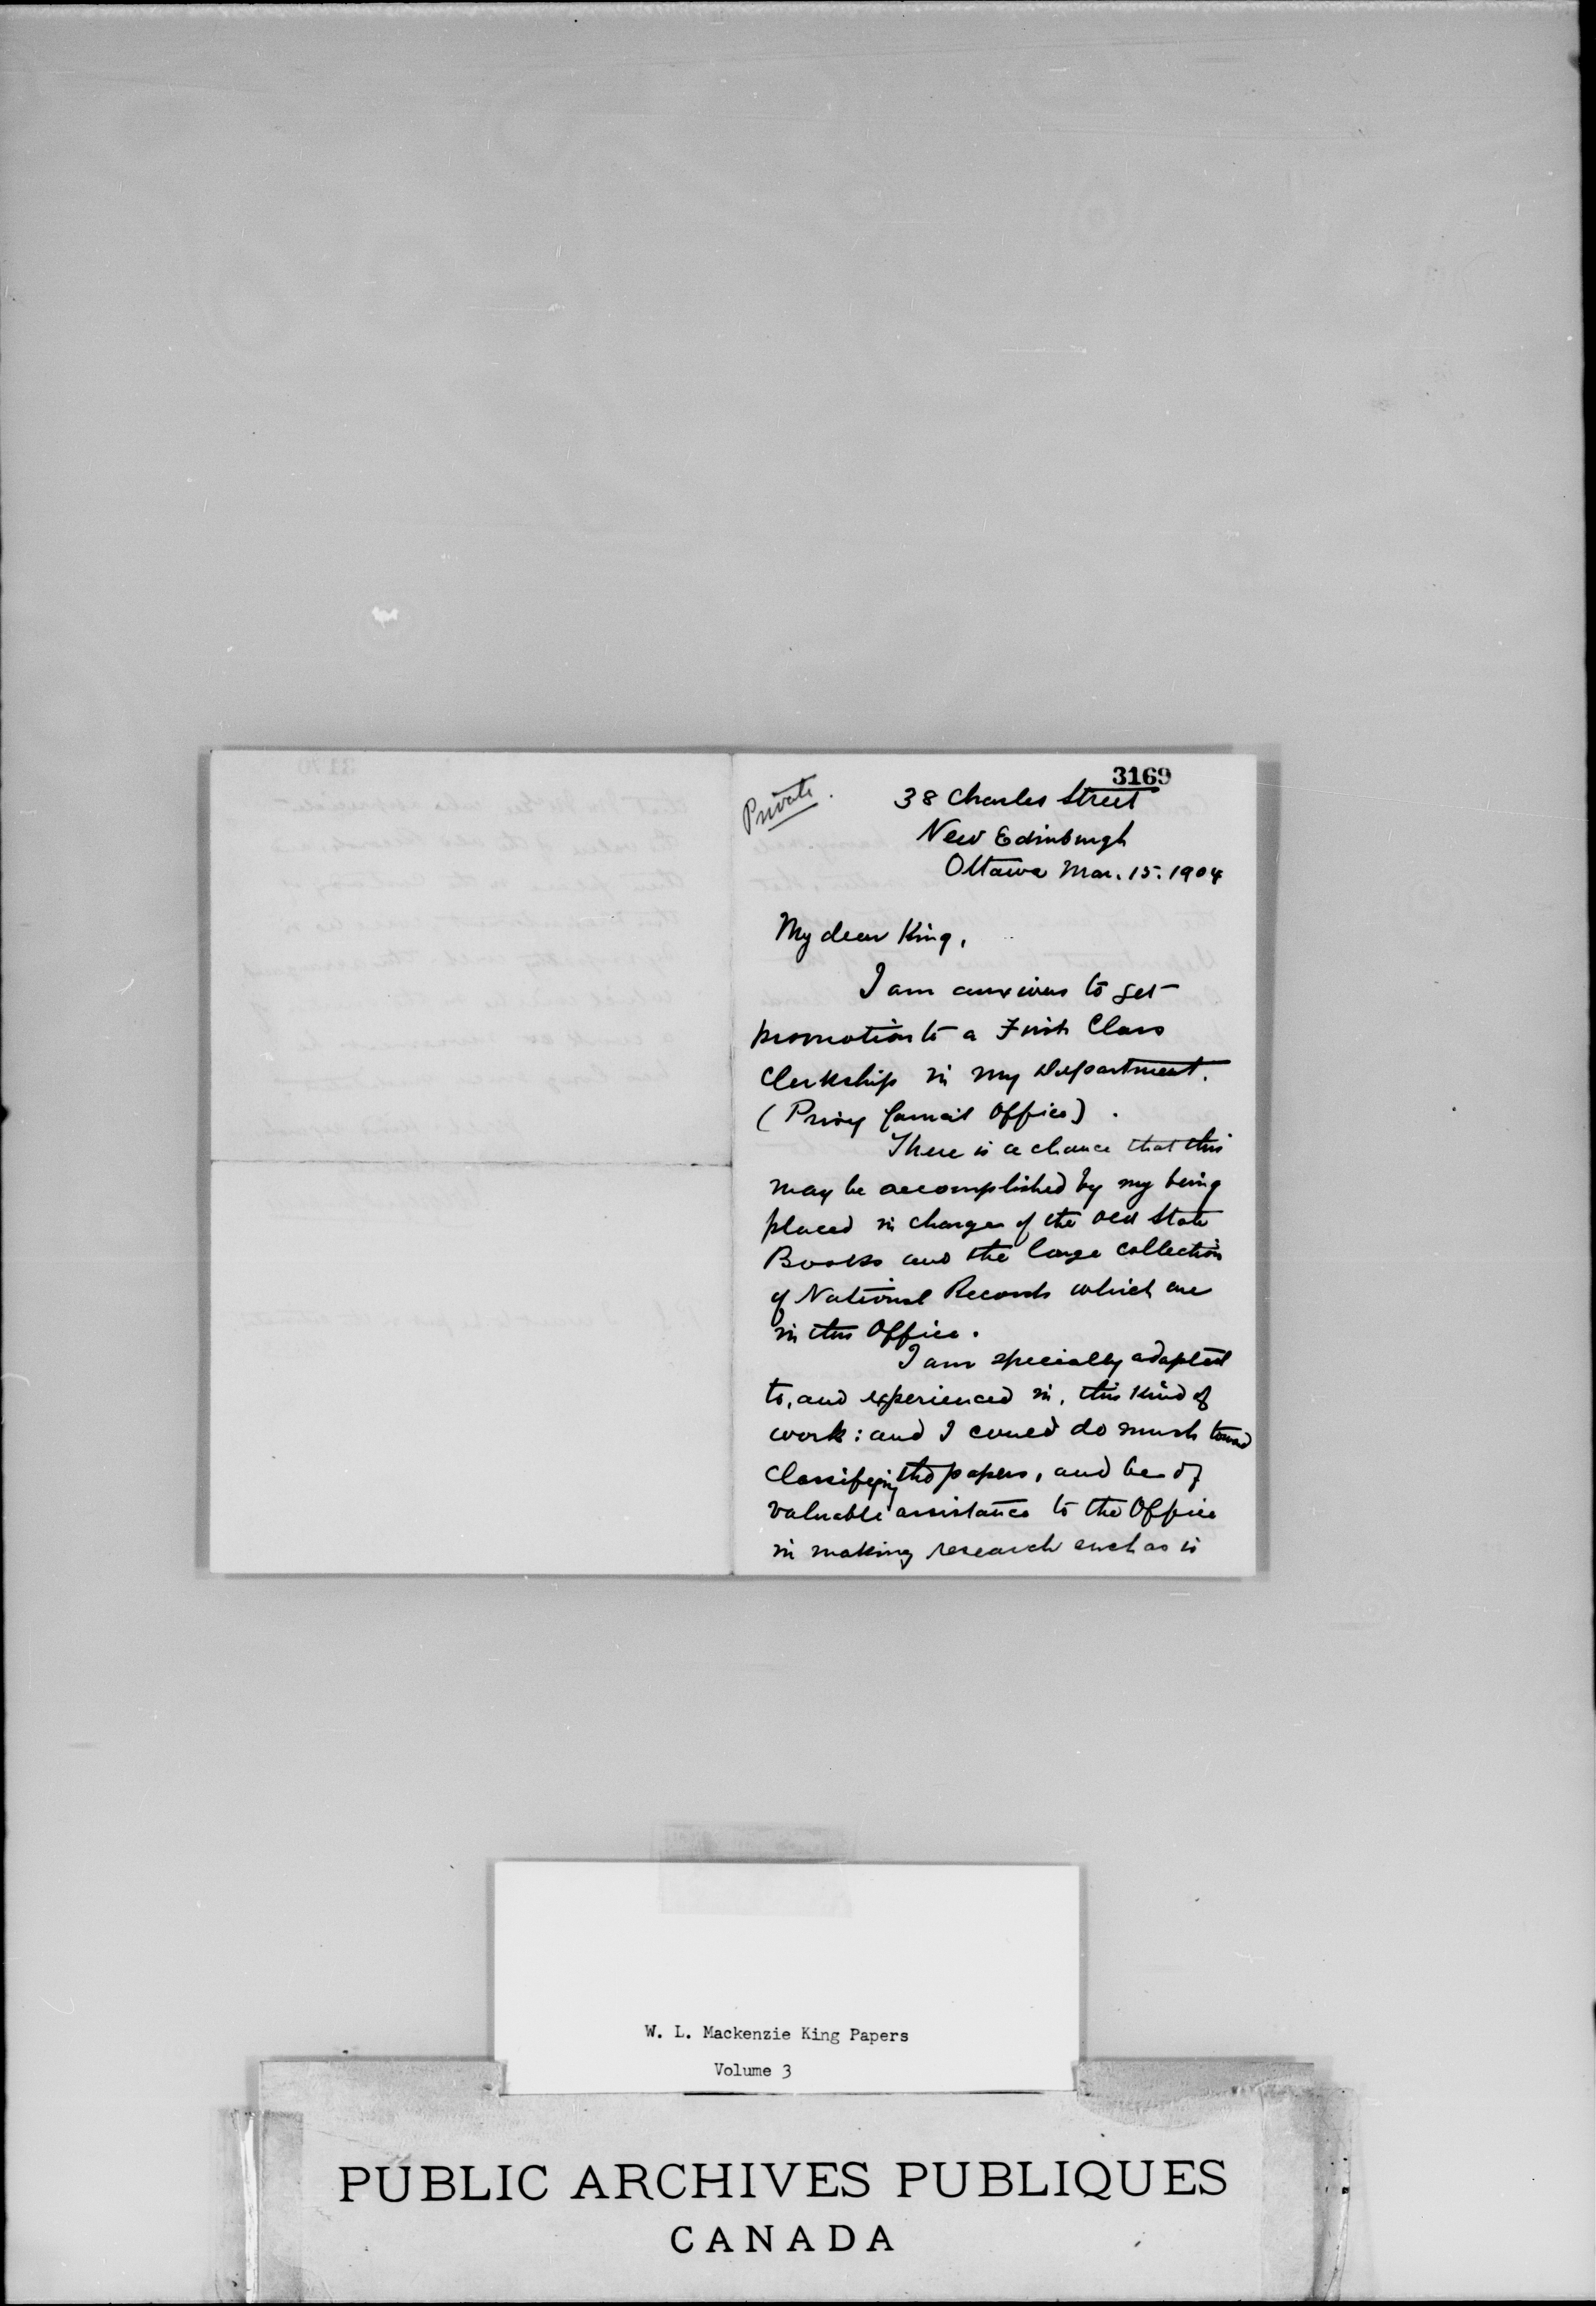 3169
Private.
38 Charles Street
New Edinburgh
Ottawa Mar. 15. 1904
My dear King,
I am anxious to get
promotion to a First Class
Clerkship in my Department.
(Privy Council Office).
There is a chance that this
may be accomplished by my being
placed in charge of the old State
Books and the large collection
of National Records which are
in this Office.
I am specially adapted
to, and experienced in, this kind of
work: and I could do much toward
classifying the papers, and be of
valuable assistance to the Office
in making research such as is
W. L. Mackenzie King Papers
Volume 3
PUBLIC ARCHIVES PUBLIQUES
CANADA